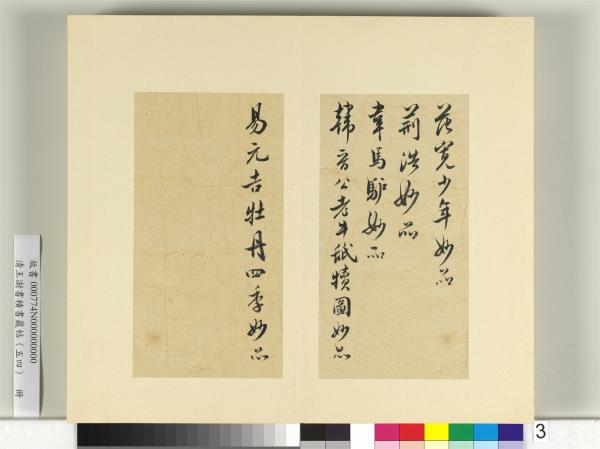 范寛少年妙品
荊浩妙品
韋馬驢妙品
韓晉公老牛舐犢圖妙品
易元吉牡丹四季妙品
故書 000774N000000000
清王澍書積書巖帖（五四） 冊
3